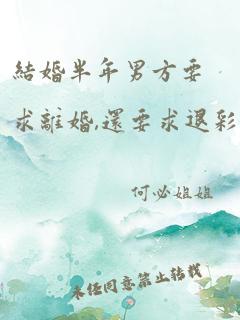 結婚半年男方要
求離婚,還要求退彩
何必姐姐
未經同意禁止轉載